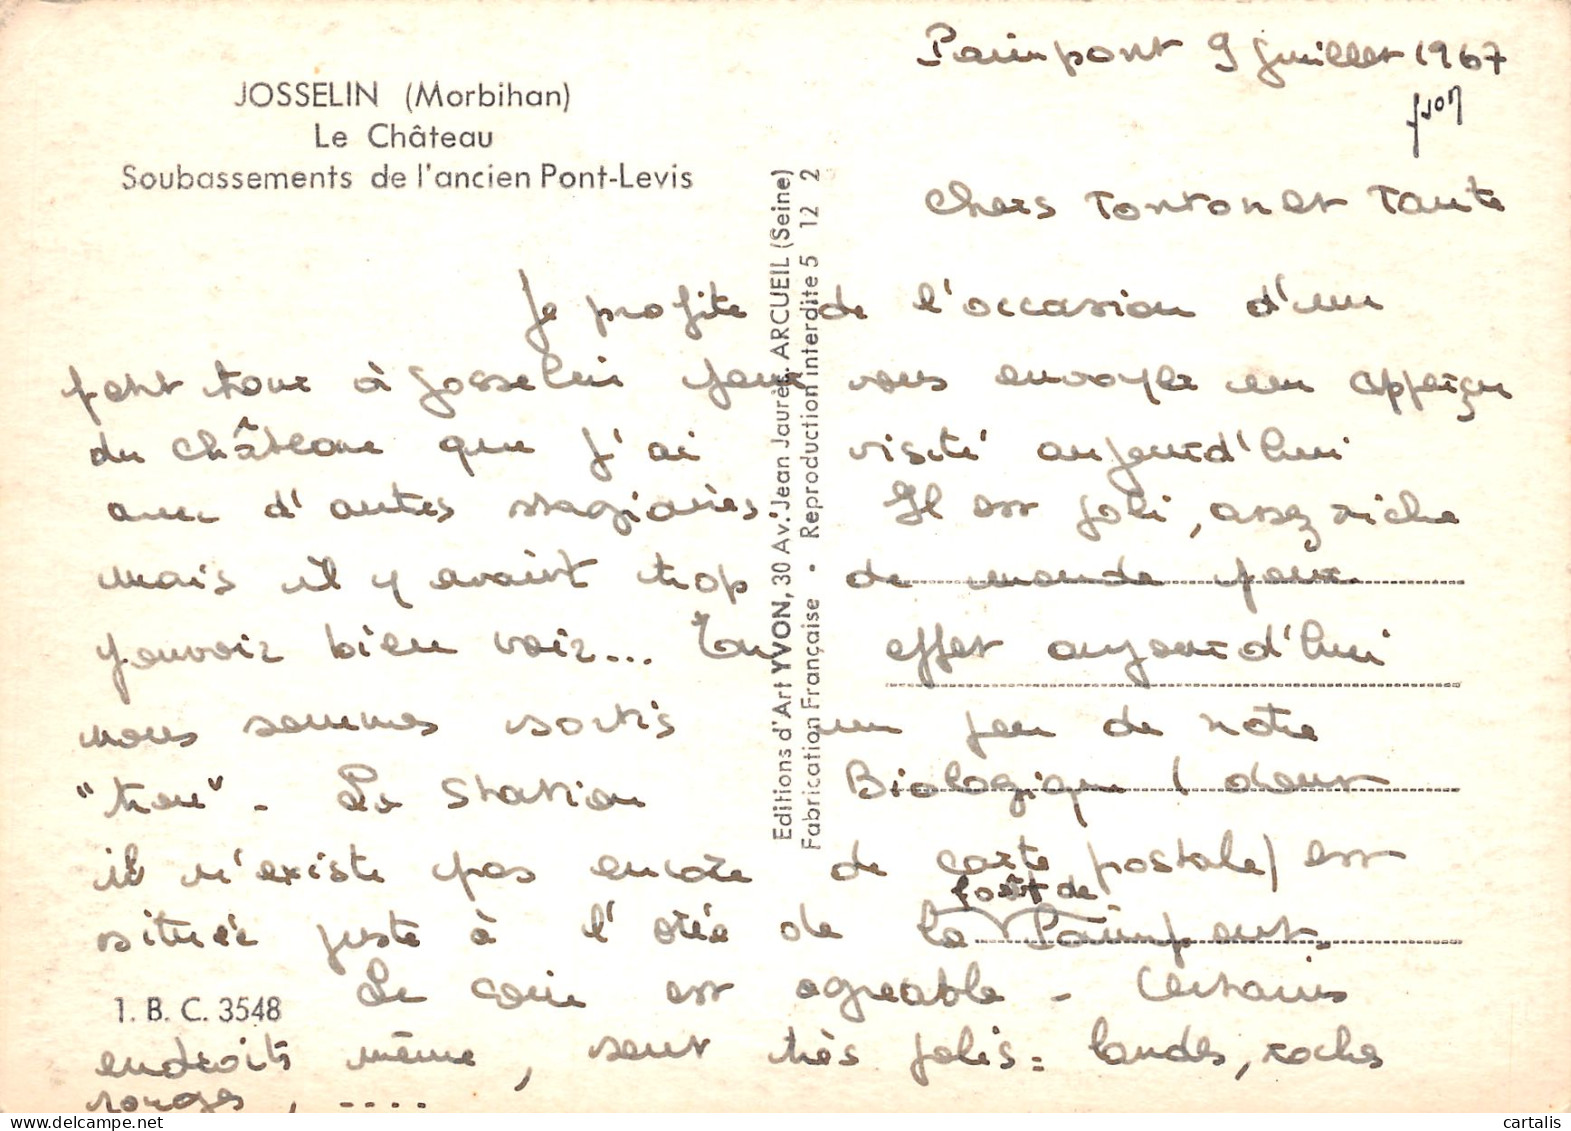 Paimpont 9 Juillet 1967
JOSSELIN (Morbihan)
Le Château
Soubassements de l'ancien Pont-Levis
Chers Tonton et Tante
Je profite de l'occasion d'un
petit tour à Josselin pour vous envoyer un apperçu
du château que j'ai visité aujourd'hui
avec d'autres stagiaires. Il est joli, assez riche
mais il y avait trop de monde pour
pouvoir bien voir... En effet aujourd'hui
nous sommes sortis un peu de notre
"trou" - La Station Biologique (dont
il n'existe pas encore de carte postale) est
située juste à l'orée de la forêt de Paimpont.
Le coin est agréable - Certains
endroits même, sont très jolis = landes, roches
rouges, - ....
1. B. C. 3548
Editions d'Art YVON, 30 Av. Jean Jaurès, ARCUEIL (Seine)
Fabrication Française • Reproduction Interdite 5 12 2
cartalis
delcampe.net